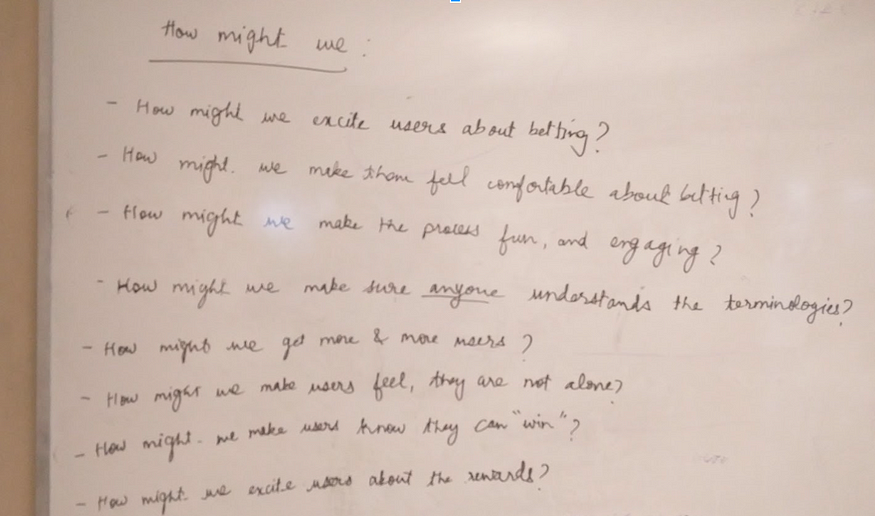 How might we :
- How might we excite users about betting?
- How might. we make them feel comfortable about betting?
- How might we make the process fun, and engaging?
- How might we make sure anyone understands the terminologies?
- How might we get more & more users?
- How might we make users feel, they are not alone?
- How might. we make users know they can "win"?
- How might we excite users about the rewards?